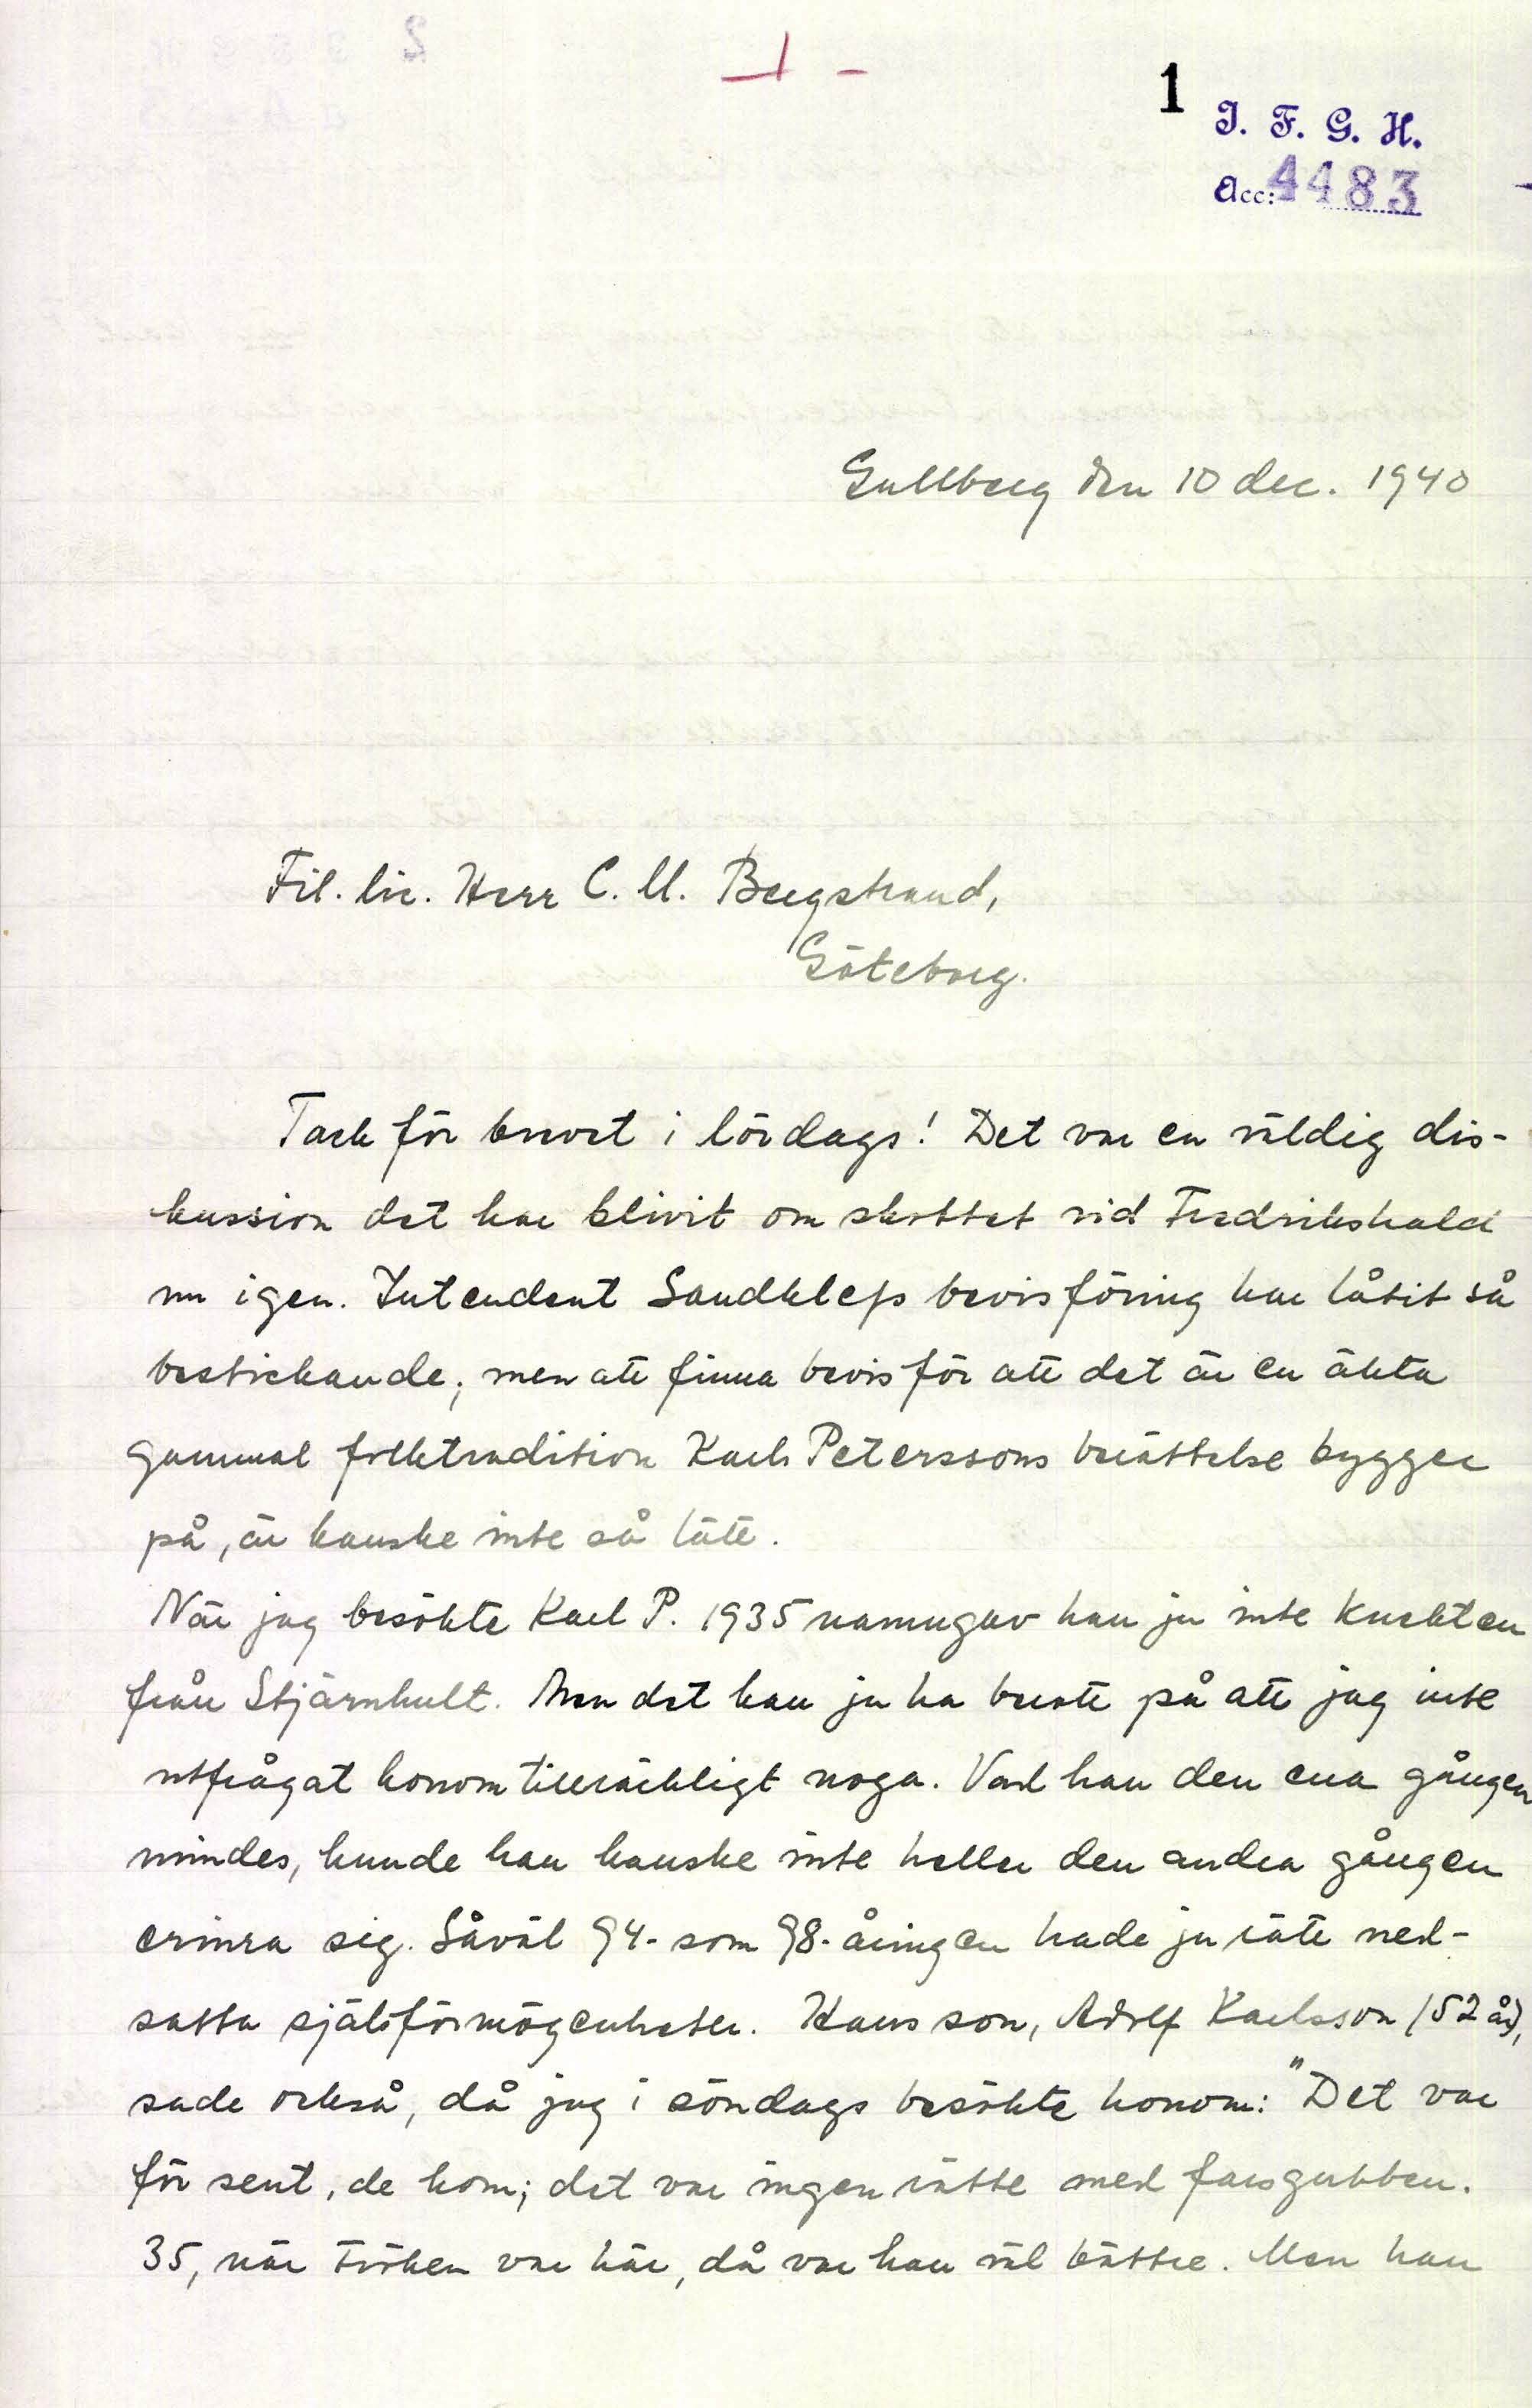 1
I. F. G. H.
Acc: 4483
Gullberg den 10 dec. 1940
Fil. lic. Herr C. M. Bergstrand,
Göteborg.
Tack för brevet i lördags! Det var en väldig dis-
kussion det har blivit om skottet vid Fredrikshald
nu igen. Intendent Sandklefs bevisföring har låtit så
bestickande; men att finna bevis för att det är en äkta
gammal folktradition Karl Peterssons berättelse bygger
på, är kanske inte så lätt.
När jag besökte Karl P. 1935 namngav han ju inte knekten
från Stjärnhult. Men det kan ju ha berott på att jag inte
utfrågat honom tillräckligt noga. Vad han den ena gången
mindes, kunde han kanske inte heller den andra gången
erinra sig. Såväl 94- som 98-åringen hade ju rätt ned-
satta själsförmögenheter. Hans son, Adolf Karlsson (52 år),
sade också, då jag i söndags besökte honom: "Det var
för sent, de kom; det var ingen rätte med farsgubben.
35, när fröken var här, då var han väl bättre. Men han